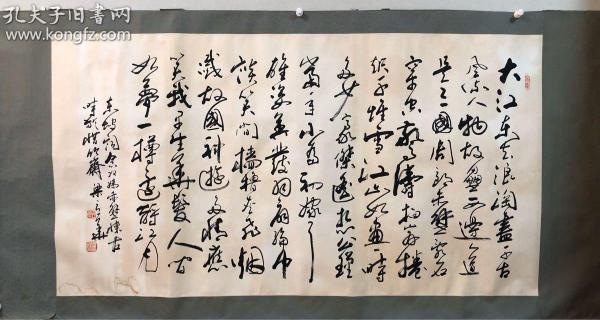 孔夫子旧书网
www.kongfz.com
大江东去浪淘尽千古
风流人物故垒西边人道
是三国周郎赤壁乱石
穿空惊涛拍岸捲
起千堆雪江山如画一时
多少豪傑遥想公瑾
当年小乔初嫁了
雄姿英发羽扇纶巾
谈笑间樯橹灰飞烟
灭故國神游多情應
笑我早生華髮人间
如夢一樽還酹江月